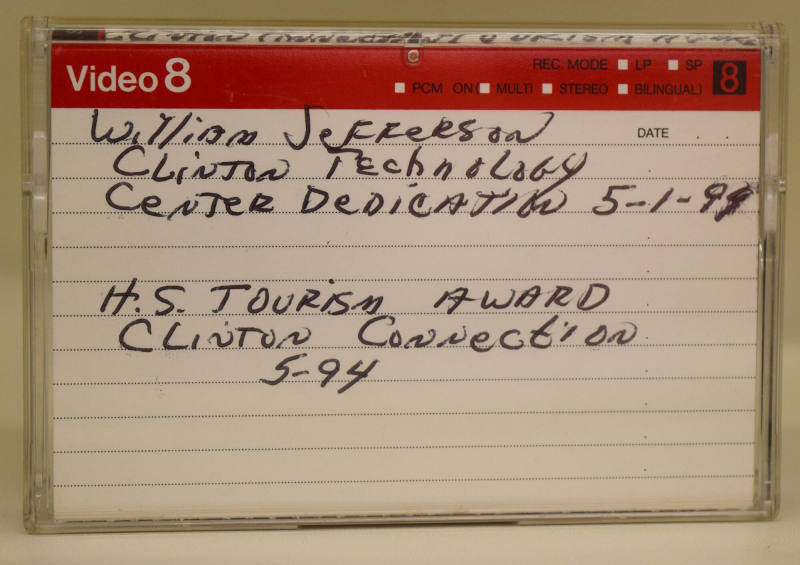 CLINTON CONNECTION TOURISM AWARD
Video 8
REC. MODE LP SP
PCM ON MULTI STEREO BILINGUAL)
8
DATE . .
William Jefferson
Clinton Technology
Center Dedication 5-1-94
H.S. Tourism Award
Clinton Connection
5-94